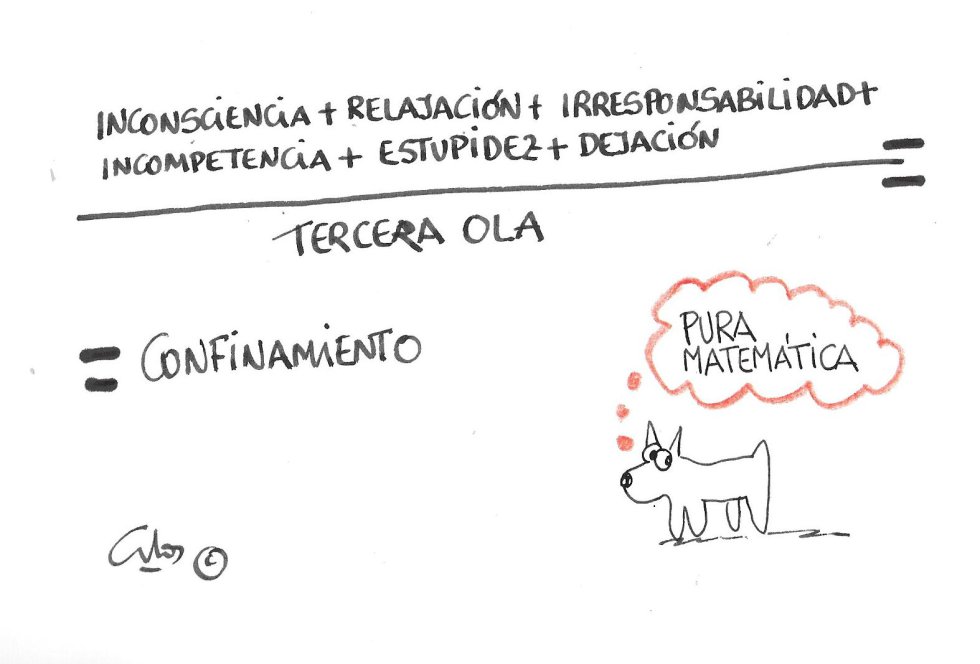 INCONSCIENCIA + RELAJACIÓN + IRRESPONSABILIDAD +
INCOMPETENCIA + ESTUPIDEZ + DEJACIÓN =
TERCERA OLA
= CONFINAMIENTO
PURA
MATEMÁTICA
©